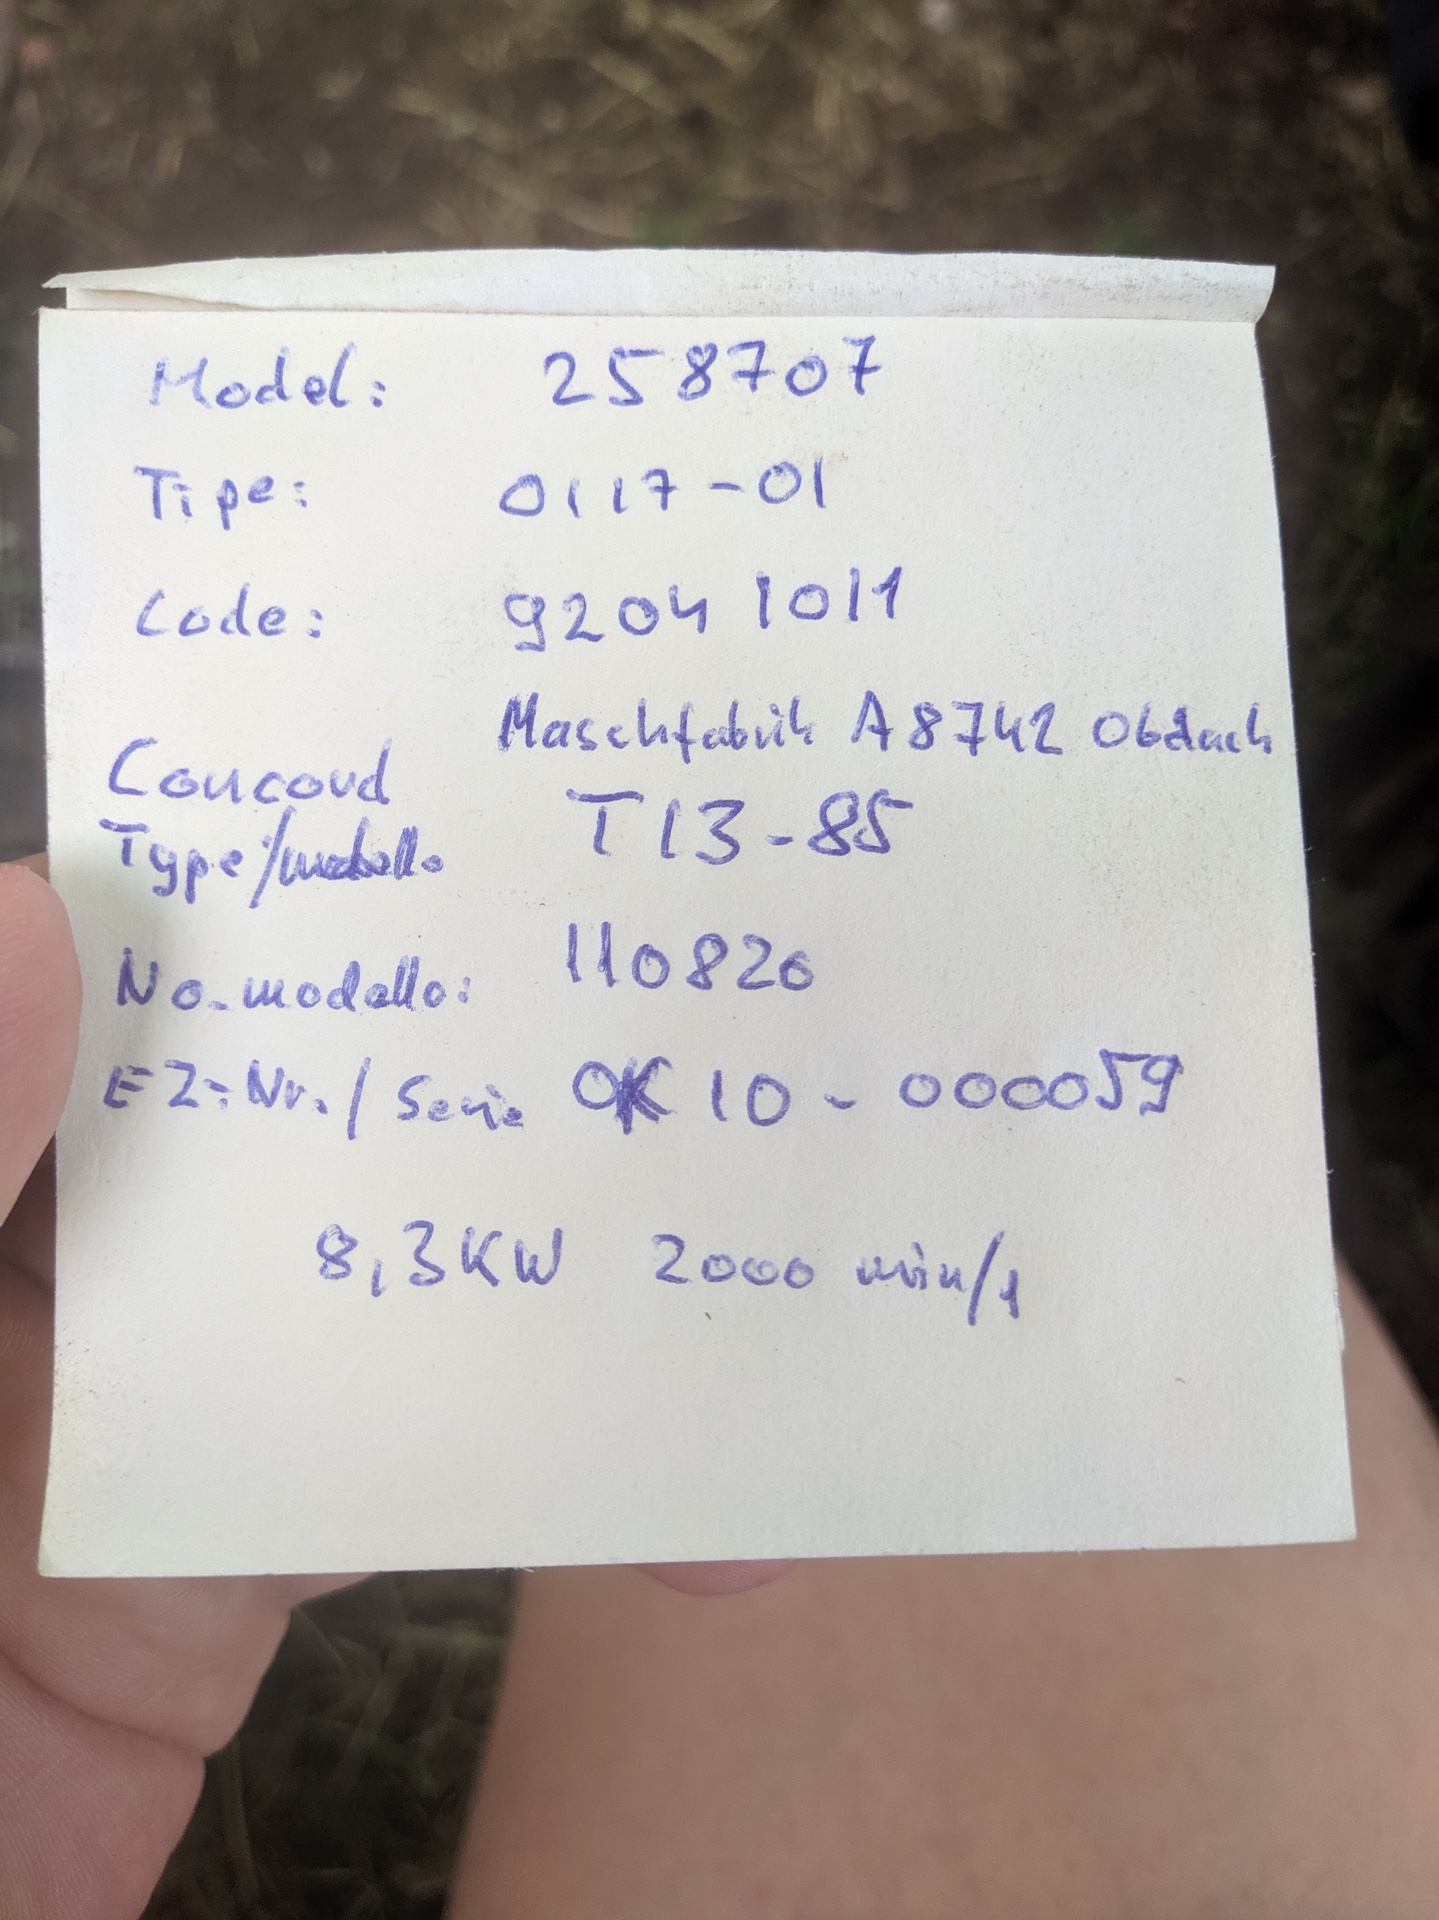 Model: 258707
Tipe: 0117-01
Code: 9204 1011
Maschfabrik A8742 Obdach
Concord
Type/modello T13-85
No. modello: 110820
EZ-Nr./Serie OK 10-000059
8,3KW 2000 min/1